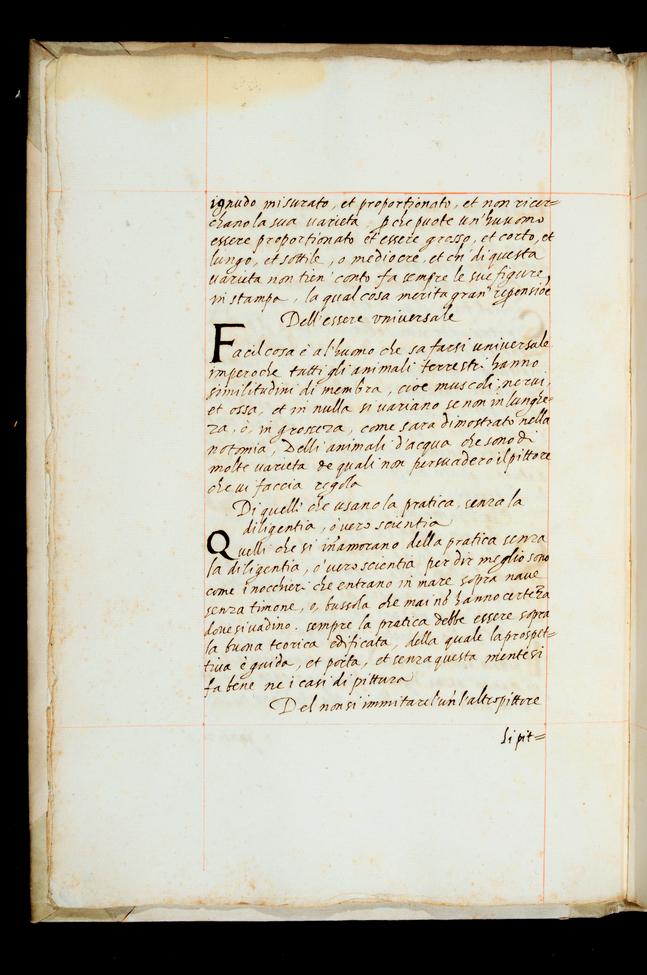 ignudo misurato, et proportionato, et non ricer=
chano la sua varieta, p che puote un'huomo
essere proportionato et essere grosso, et corto, et
lungo, et sottile, o mediocre, et ch' di questa
varieta non tien' conto fa sempre le sue figure,
in stampa, la qual cosa merita gran' repensioē
Dell'essere vniuersale
Facil cosa è al'huomo che sa farsi uniuersale
imperoche tutti gli animali terrestri hanno
similitudini di membra, cioe muscoli, nerui,
et ossa, et in nulla si variano se non in lunghe=
za, ò, in grosseza, come sara dimostrato nella
notomia, Delli animali d'acqua che sono di
molte varieta de quali non persuadero il pittore
che ui faccia regola
Di quelli che usano la pratica, senza la
diligentia, ò uero scientia
Quelli che si in'amorano della pratica senza
la diligentia, ò uero scientia per dir meglio sono
come i nocchieri che entrano in mare sopra naue
senza timone, o, bussola che mai nō hanno certeza
doue si uadino. sempre la pratica debbe essere sopra
la buona teorica edificata, della quale la prospet=
tiua è guida, et porta, et senza questa niente si
fa bene ne i casi di pittura
Del non si immitare l'un l'altro pittore
Si pit=